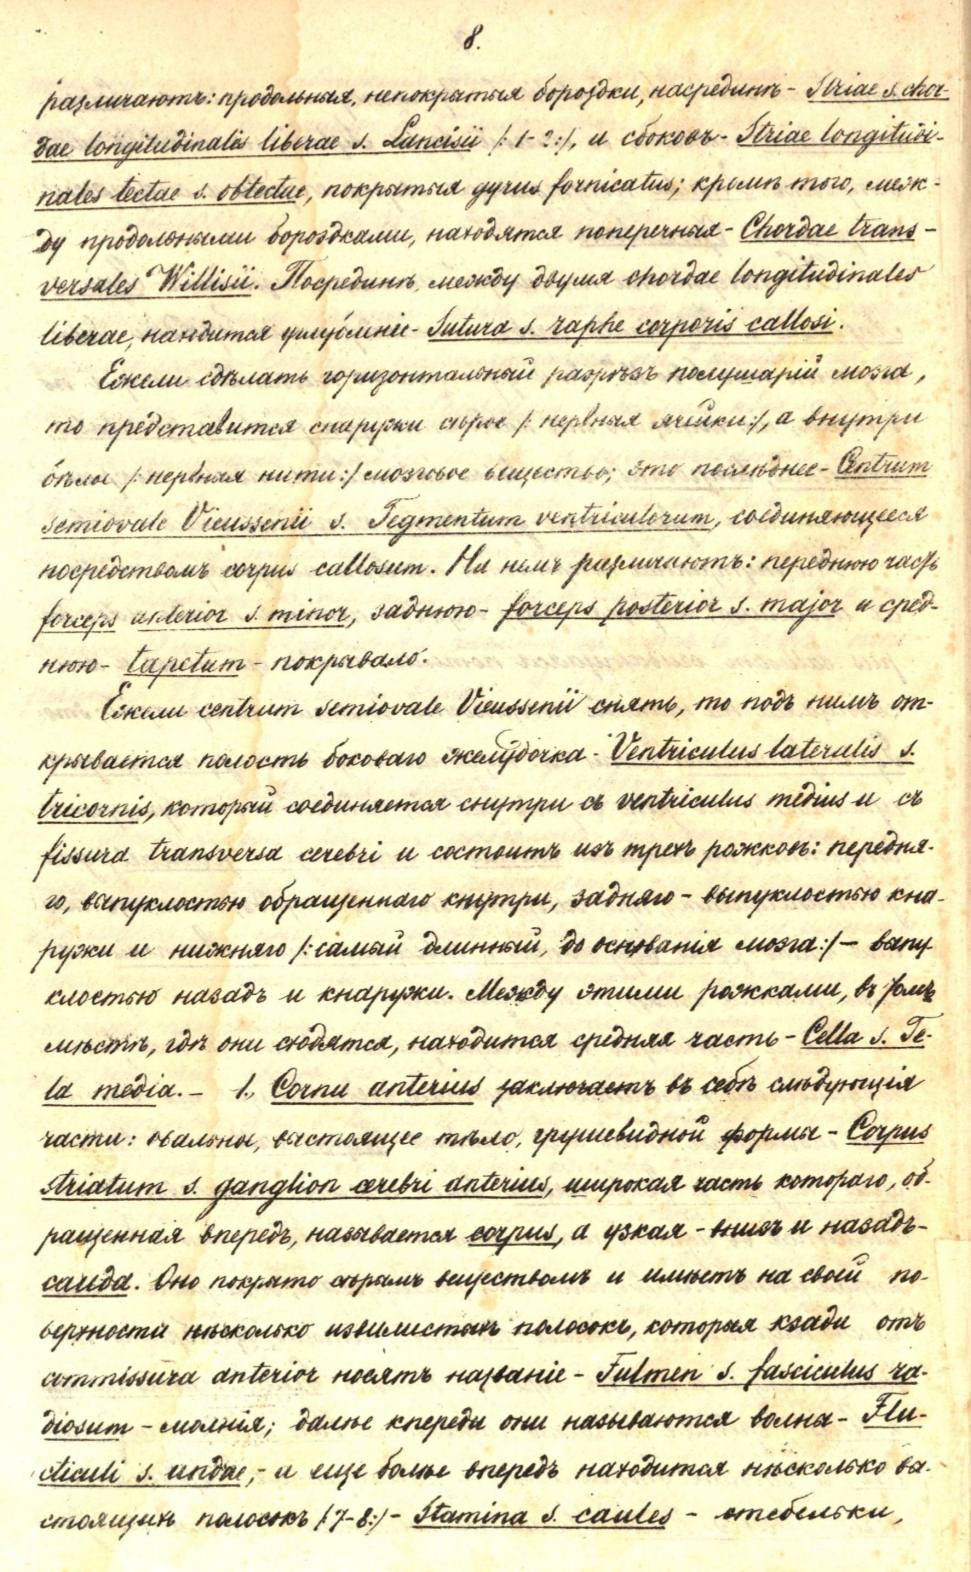 8.
различаютъ: продольныя, непокрытыя бороздки, насрединѣ - Striae s. chor-
dae longitudinales liberae s. Lancisii /:1-2:/, и сбоковъ - Striae longitudi-
nales tectae s. obtectae, покрытыя gyrus fornicatus; кромѣ того, меж-
ду продольными бороздками, находятся поперечныя - Chordae trans-
versales Willisii. Посрединѣ, между двумя chordae longitudinales
liberae, находится углубленіе - Sutura s. raphe corporis callosi.
Ежели сдѣлать горизонтальный разрѣзъ полушарій мозга,
то представится снаружи сѣрое /:нервныя ячейки:/, а внутри
бѣлое /:нервныя нити:/ мозговое вещество; это послѣднее - Centrum
semiovale Vieussenii s. Tegmentum ventriculorum, соединяющееся
посредствомъ corpus callosum. На немъ различаютъ: переднюю часть
forceps anterior s. minor, заднюю - forceps posterior s. major и сред-
нюю - tapetum - покрывало.
Ежели centrum semiovale Vieussenii снять, то подъ нимъ от-
крывается полость боковаго желудочка - Ventriculus lateralis s.
tricornis, который соединяется снутри съ ventriculus medius и съ
fissura transversa cerebri и состоитъ изъ трехъ рожковъ: передня-
го, выпуклостью обращеннаго кнутри, задняго - выпуклостью кна-
ружи и нижняго /:самый длинный, до основанія мозга:/ - выпу-
клостью назадъ и кнаружи. Между этими рожками, въ томъ
мѣстѣ, гдѣ они сходятся, находится средняя часть - Cella s. Te-
la media. - 1., Cornu anterius заключаетъ въ себѣ слѣдующія
части: овальное, вастоящее тѣло, грушевидной формы - Corpus
striatum s. ganglion cerebri anterius, широкая часть котораго, об-
ращенная впередъ, называется corpus, а узкая - внизъ и назадъ -
cauda. Оно покрыто сѣрымъ веществомъ и имѣетъ на своей по-
верхности нѣсколько извилистыхъ полосокъ, которыя кзади отъ
commissura anterior носятъ названіе - Fulmen s. fasciculus ra-
diosum - молнія; далѣе кпереди они называются волны - Flu-
cticuli s. undae, - и еще болѣе впередъ находится нѣсколько ва-
стоящихъ полосокъ /:7-8:/ - Stamina s. caules - стебельки,